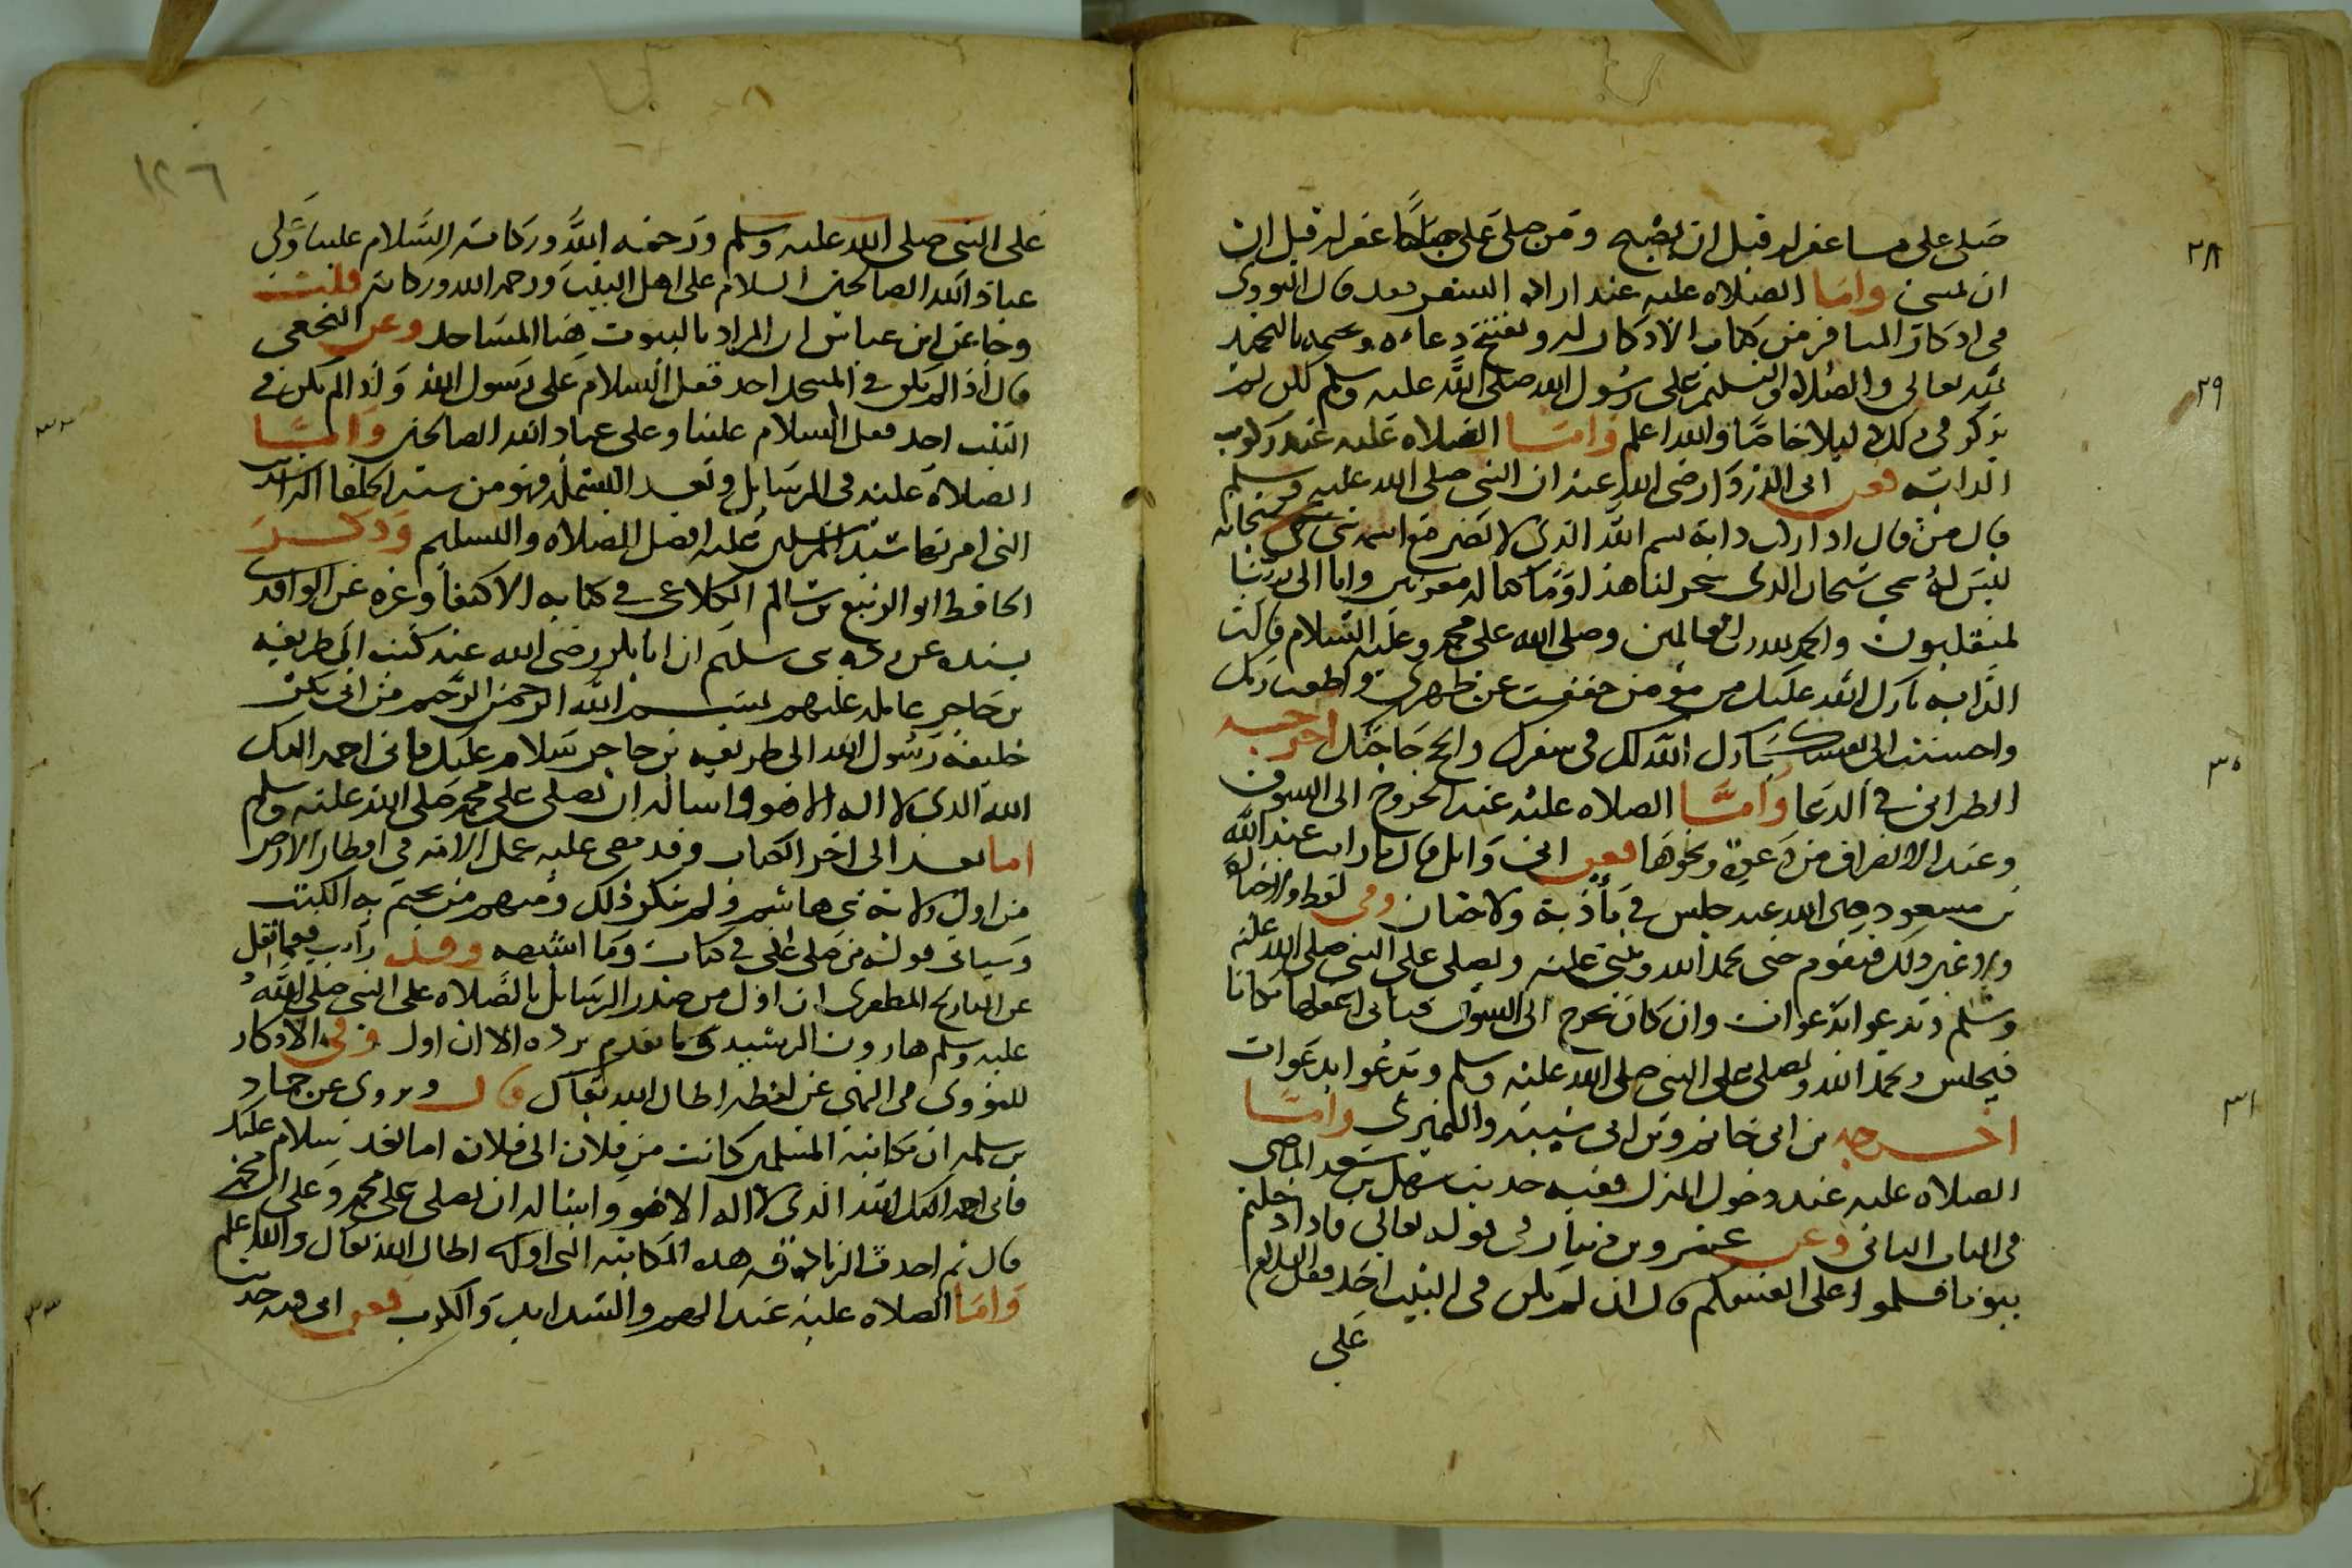 صلى علي مساء غفر له قبل ان يصبح ومن صلى علي صباحا غفر له قبل ان
ان يمسي واما الصلاة عليه عند ارادة السفر فقد قال النووي
في اذكار المسافر من كتاب الاذكار له ويفتتح دعاءه ويختمه بالتحميد
لله تعالى والصلاة والتسليم على رسول الله صلى الله عليه وسلم لكن لم
يذكر في ذلك دليلا خاصا والله اعلم واما الصلاة عليه عند ركوب
الدابة فعن ابي الدرداء رضي الله عنه ان النبي صلى الله عليه وسلم
قال من قال اذا ركب دابة بسم الله الذي لا يضر مع اسمه شيء سبحانه
ليس له سمي سبحان الذي سخر لنا هذا وما كنا له مقرنين وانا الى ربنا
لمنقلبون والحمد لله رب العالمين وصلى الله على محمد وعليه السلام قالت
الدابة بارك الله عليك من مؤمن خففت عن ظهري واطعت ربك
واحسنت الى نفسك بارك الله لك في سفرك وانجح حاجتك اخرجه
الطبراني في الدعا واما الصلاة عليه عند الخروج الى السوق
وعند الانصراف من دعوة ونحوها فعن ابي وائل قال ما رايت عبد الله
بن مسعود رضي الله عنه جلس في مأدبة ولا ختان وفي لفظ ولا جنازة
ولا غير ذلك فيقوم حتى يحمد الله ويثني عليه ويصلي على النبي صلى الله عليه
وسلم ويدعو بدعوات وان كان يخرج الى السوق فياتي اغفلها مكانا
فيجلس ويحمد الله ويصلي على النبي صلى الله عليه وسلم ويدعوا بدعوات
اخرجه بن ابي حاتم وبن ابي شيبة والنميري واما
الصلاة عليه عند دخول المنزل ففيه حديث سهل بن سعد الماضي
في الباب الثاني وعن عمرو بن دينار في قوله تعالى فاذا دخلتم
بيوتا فسلموا على انفسكم قال ان لم يكن في البيت احد فقل السلام
على
١٢٦
على النبي صلى الله عليه وسلم ورحمة الله وبركاته السلام علينا وعلى
عباد الله الصالحين السلام على اهل البيت ورحمة الله وبركاته قلت
وجا عن ابن عباس ان المراد بالبيوت هنا المساجد وعن النخعي
قال اذا لم يكن في المسجد احد فقل السلام على رسول الله واذا لم يكن في
البيت احد فقل السلام علينا وعلى عباد الله الصالحين واما
الصلاة عليه في الرسايل وبعد البسملة فهو من سنة الخلفا الراشدين
التي امر بها سيد المرسلين عليه افضل الصلاة والتسليم وذكر
الحافظ ابو الربيع بن سالم الكلاعي في كتابه الاكتفا وغيره عن الواقدي
بسنده عن سلمة ان ابا بكر رضي الله عنه كتب الى طريفة
بن حاجر عامله عليهم بسم الله الرحمن الرحيم من ابي بكر
خليفة رسول الله الى طريفة بن حاجر سلام عليك فاني احمد اليك
الله الذي لا اله الا هو واساله ان يصلي على محمد صلى الله عليه وسلم
اما بعد الى اخر الكتاب وقد مضى عليه عمل الامة في اقطار الارض
من اول ولاية بني هاشم ولم ينكر ذلك ومنهم من يختم به الكتب
وسياتي قوله من صلى علي في كتاب وما اشبهه وقد رايت فيما نقل
عن التاريخ المظفري ان اول من صدر الرسايل بالصلاة على النبي صلى الله
عليه وسلم هارون الرشيد وما تقدم يرده الا ان اول وفي الاذكار
للنووي في النهي عن لفظه اطال الله بقاك قال ويروى عن حماد
بن سلمة ان مكاتبة المسلمين كانت من فلان الى فلان اما بعد سلام عليك
فاني احمد اليك الله الذي لا اله الا هو واساله ان يصلي على محمد وعلى ال محمد
قال ثم احدث الزنادقة هذه المكاتبة التي اولها اطال الله بقاك والله اعلم
واما الصلاة عليه عند الهم والشدايد والكرب فعن ابي فيه حديث
٢٨
٢٩
٣٠
٣١
٣٢
٣٣